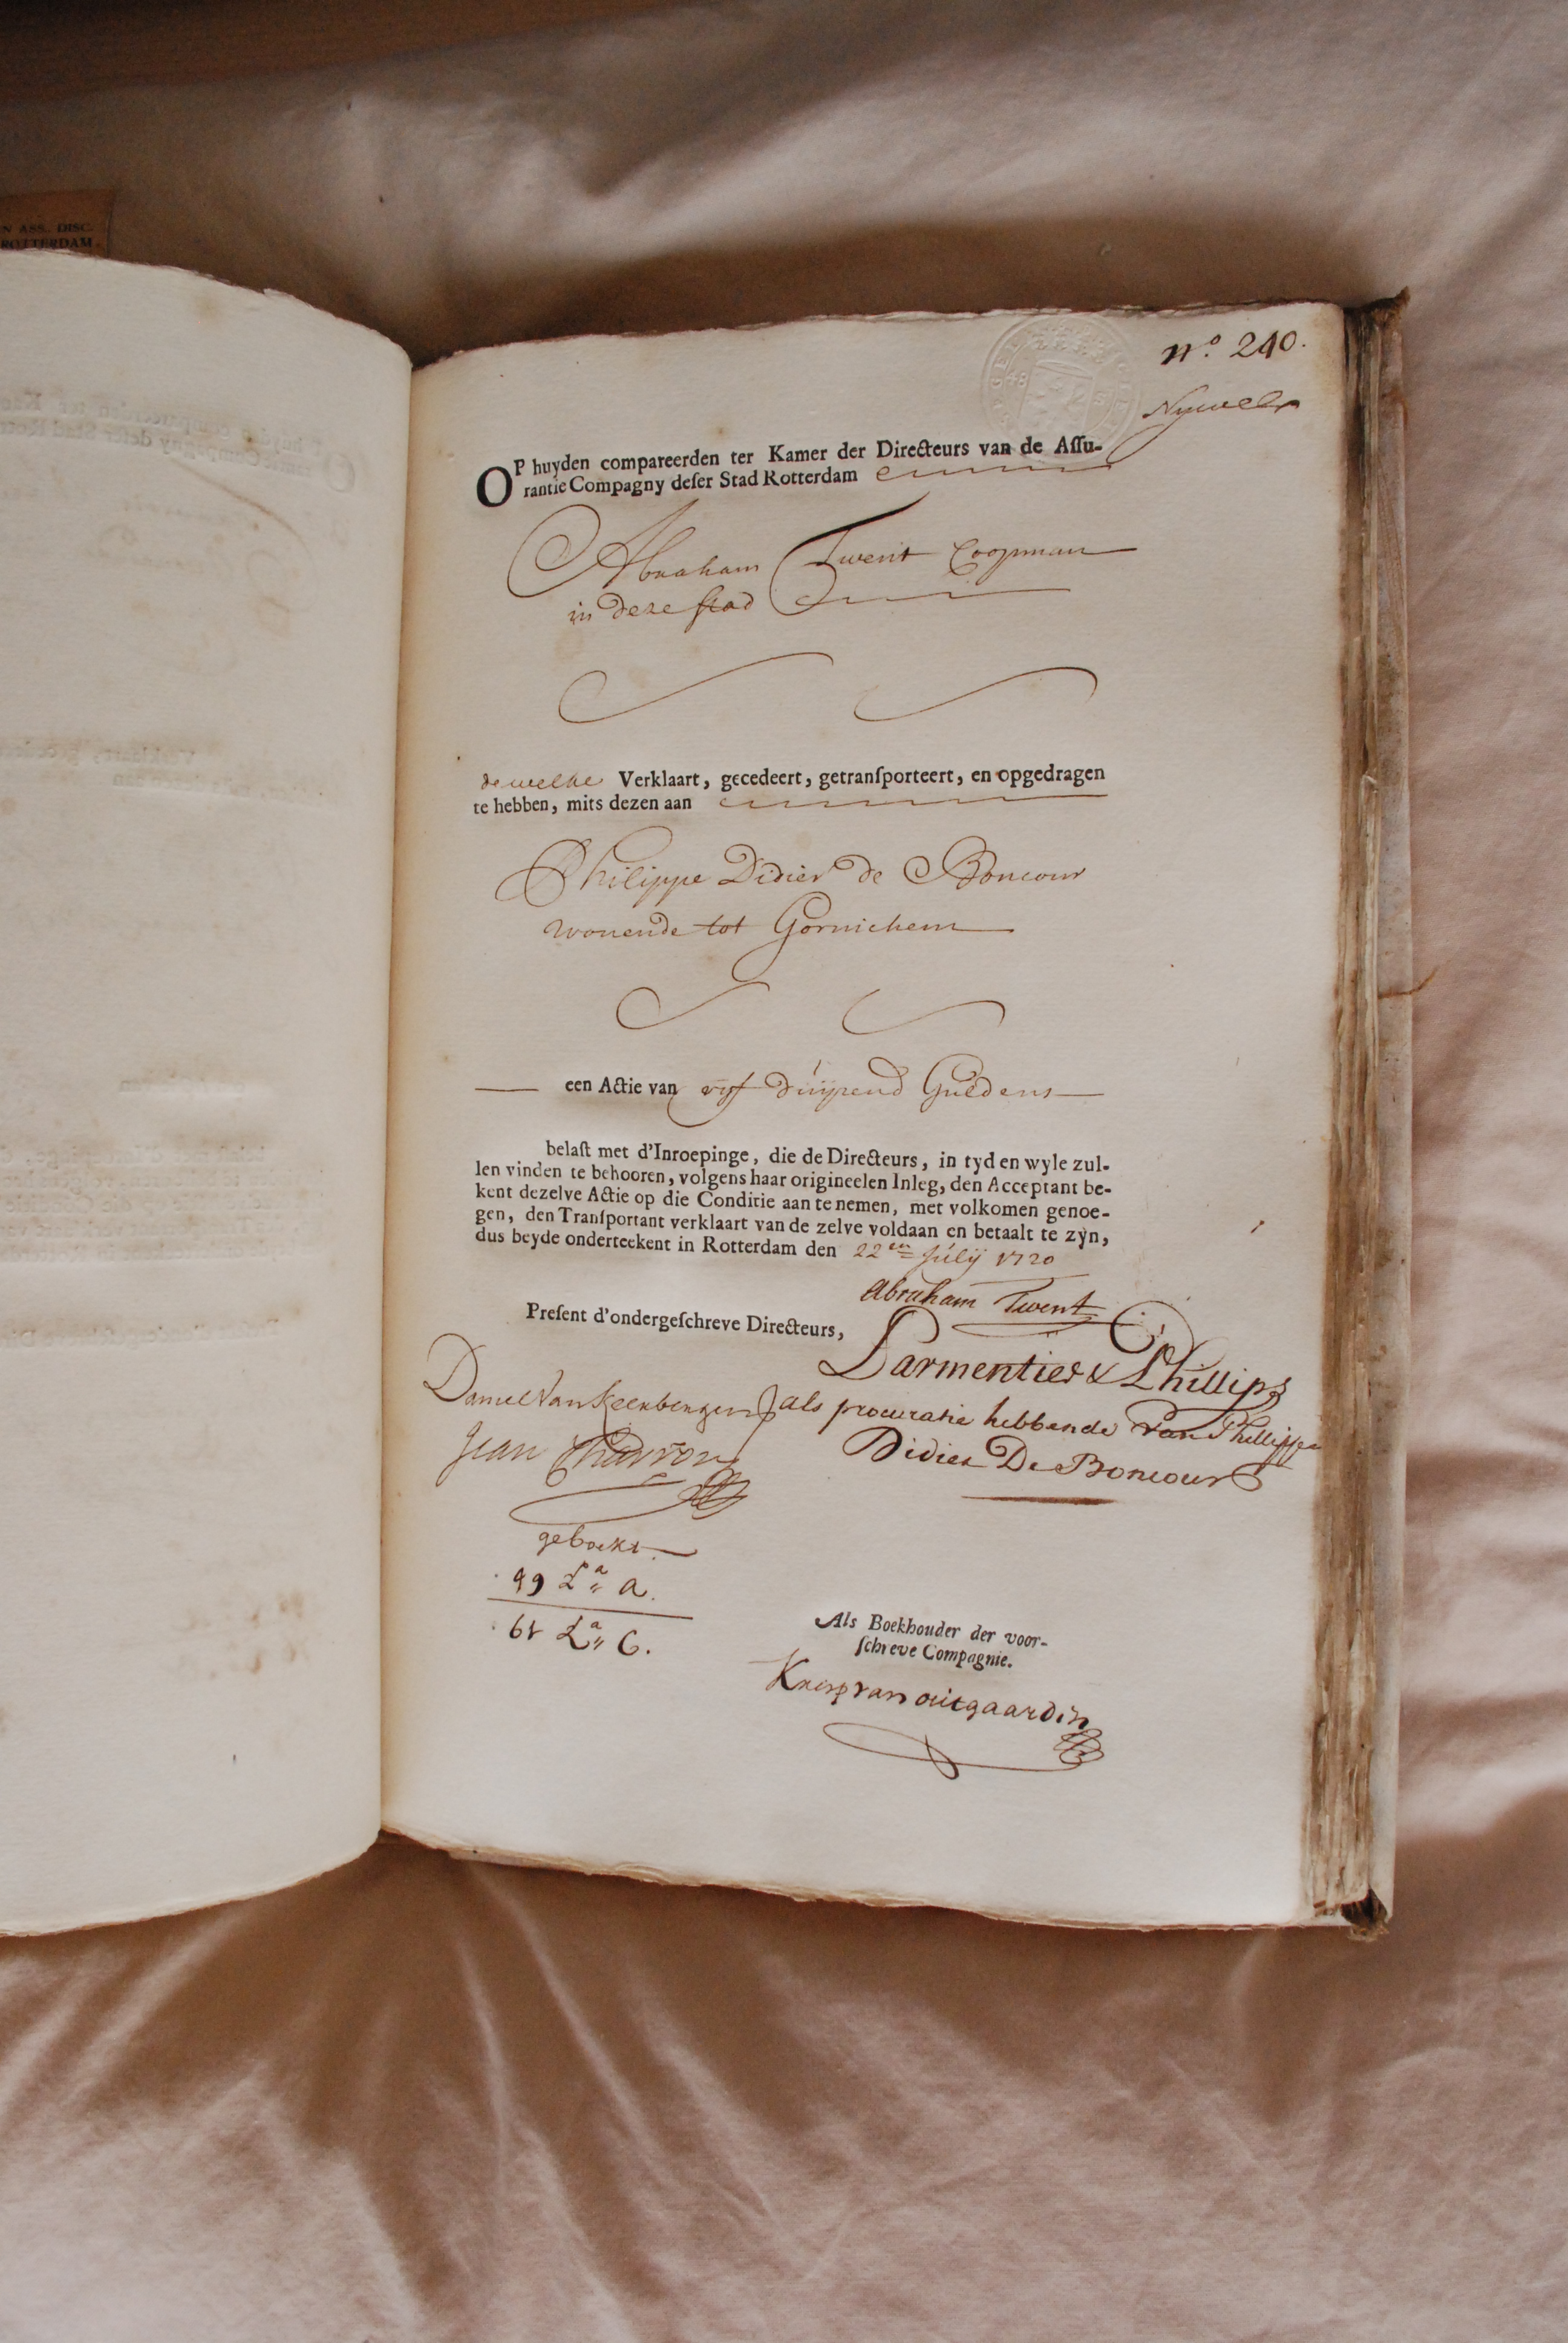 N ASS. DISC.
ROTTERDAM.
nº. 240.
OP huyden compareerden ter Kamer der Directeurs van de Aſſu-
rantie Compagny deſer Stad Rotterdam
Abraham Twent Coopman
in deze stad
dewelke Verklaart, gecedeert, getranſporteert, en opgedragen
te hebben, mits dezen aan
Philippe Didier de Boncour
wonende tot Gornichem
een Actie van vijf duijzend Guldens
belaſt met d'Inroepinge, die de Directeurs, in tyd en wyle zul-
len vinden te behooren, volgens haar origineelen Inleg, den Acceptant be-
kent dezelve Actie op die Conditie aan te nemen, met volkomen genoe-
gen, den Tranſportant verklaart van de zelve voldaan en betaalt te zyn,
dus beyde onderteekent in Rotterdam den 22en Julij 1720
Abraham Twent
Preſent d'ondergeſchreve Directeurs,
Parmentier & Phillips
als procuratie hebbende van Phillippe
Didier De Boncour
Daniel Van
Jean Charron
geboekt
99 La a.
61 La C.
Als Boekhouder der voor-
ſchreve Compagnie.